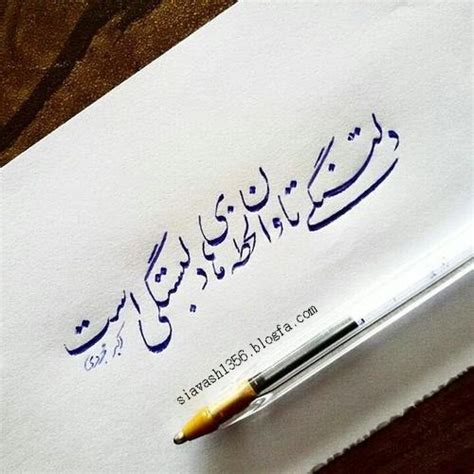 دلتنگی تاوان لحظه های دلبستگی است
siavash1356.blogfa.com